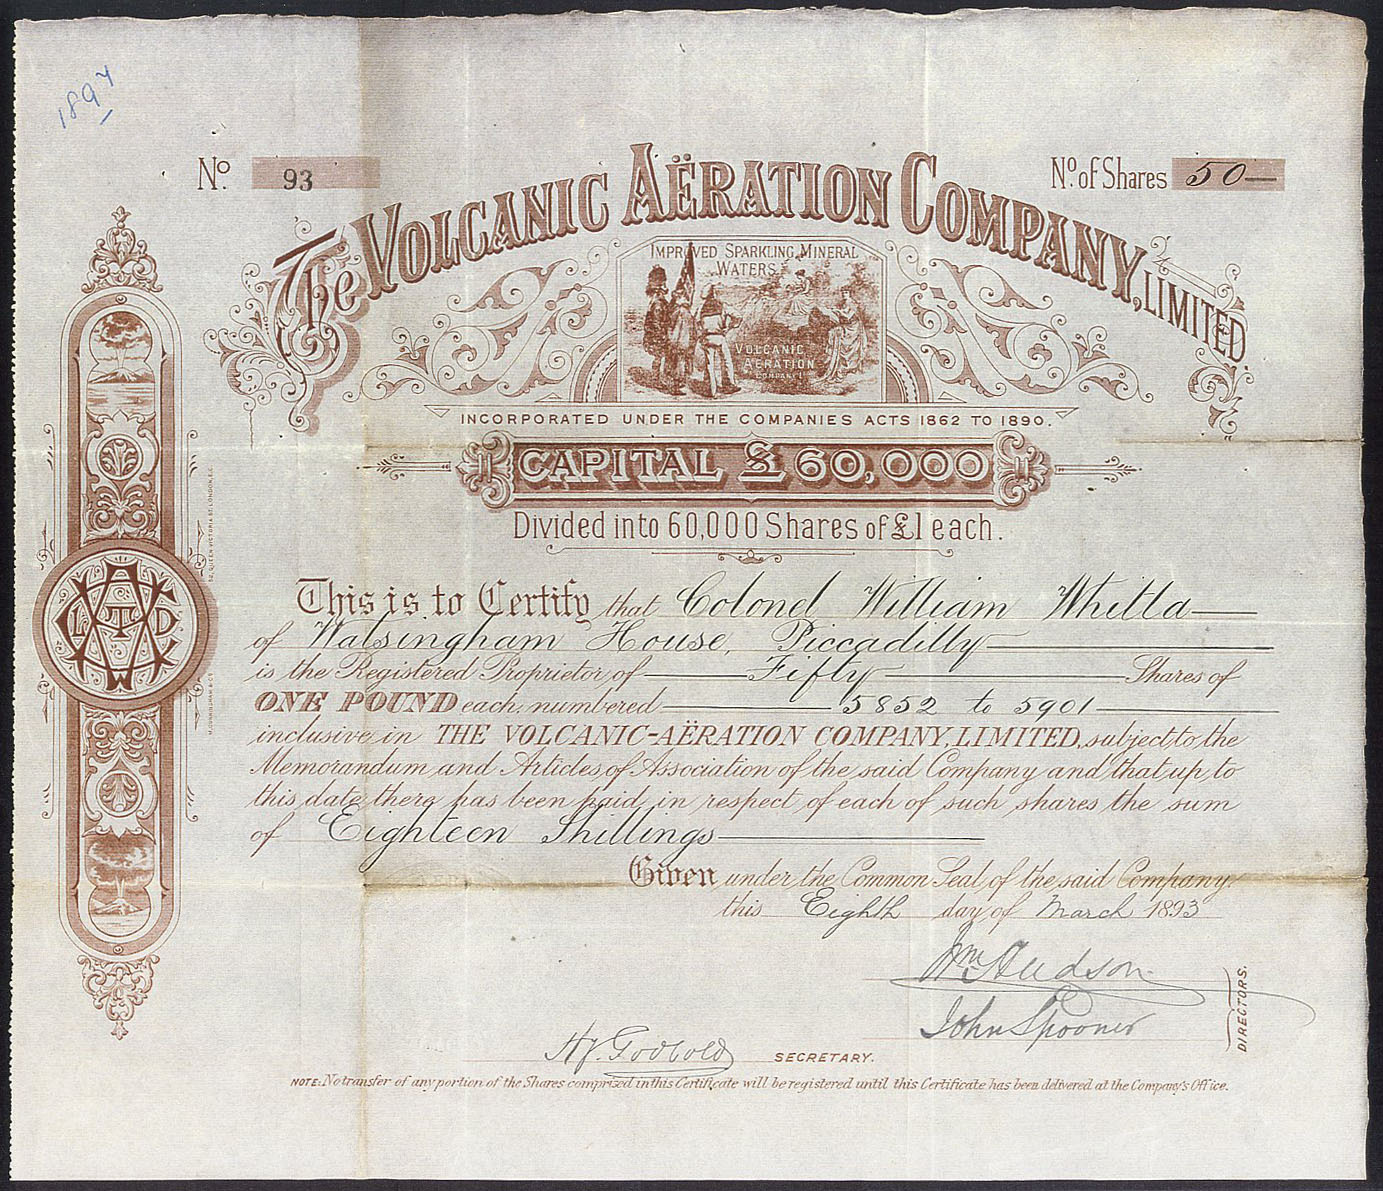 1894
No. 93
No. of Shares 50
The VOLCANIC AËRATION COMPANY, LIMITED
IMPROVED SPARKLING MINERAL
WATERS
VOLCANIC
AERATION
COMPANY
INCORPORATED UNDER THE COMPANIES ACTS 1862 TO 1890.
CAPITAL £60,000
Divided into 60,000 Shares of £1 each.
This is to Certify that Colonel William Whitla
of Walsingham House, Piccadilly
is the Registered Proprietor of Fifty Shares of
ONE POUND each, numbered 5852 to 5901
inclusive in THE VOLCANIC-AËRATION COMPANY, LIMITED, subject to the
Memorandum and Articles of Association of the said Company and that up to
this date there has been paid in respect of each of such shares the sum
of Eighteen Shillings
Given under the Common Seal of the said Company,
this Eighth day of March 1893
Wm Hudson
John Spooner
DIRECTORS.
H.J. Godbold SECRETARY.
NOTE: No transfer of any portion of the Shares comprized in this Certificate will be registered until this Certificate has been delivered at the Company's Office.
LTD